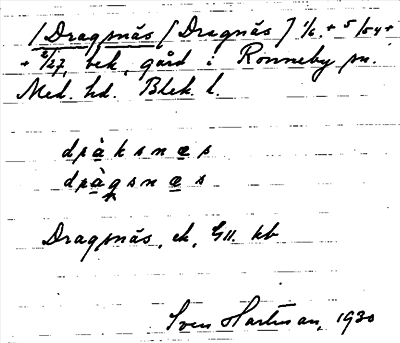 /Dragsnäs [Dragnäs] 1/6 + 5/54 +
+ 2/27, bek. gård i Ronneby sn.
Med. hd. Blek. l.
dràksnæs
dràgsnæs
Dragsnäs, ek, GII. kb
Sven Hartman, 1930